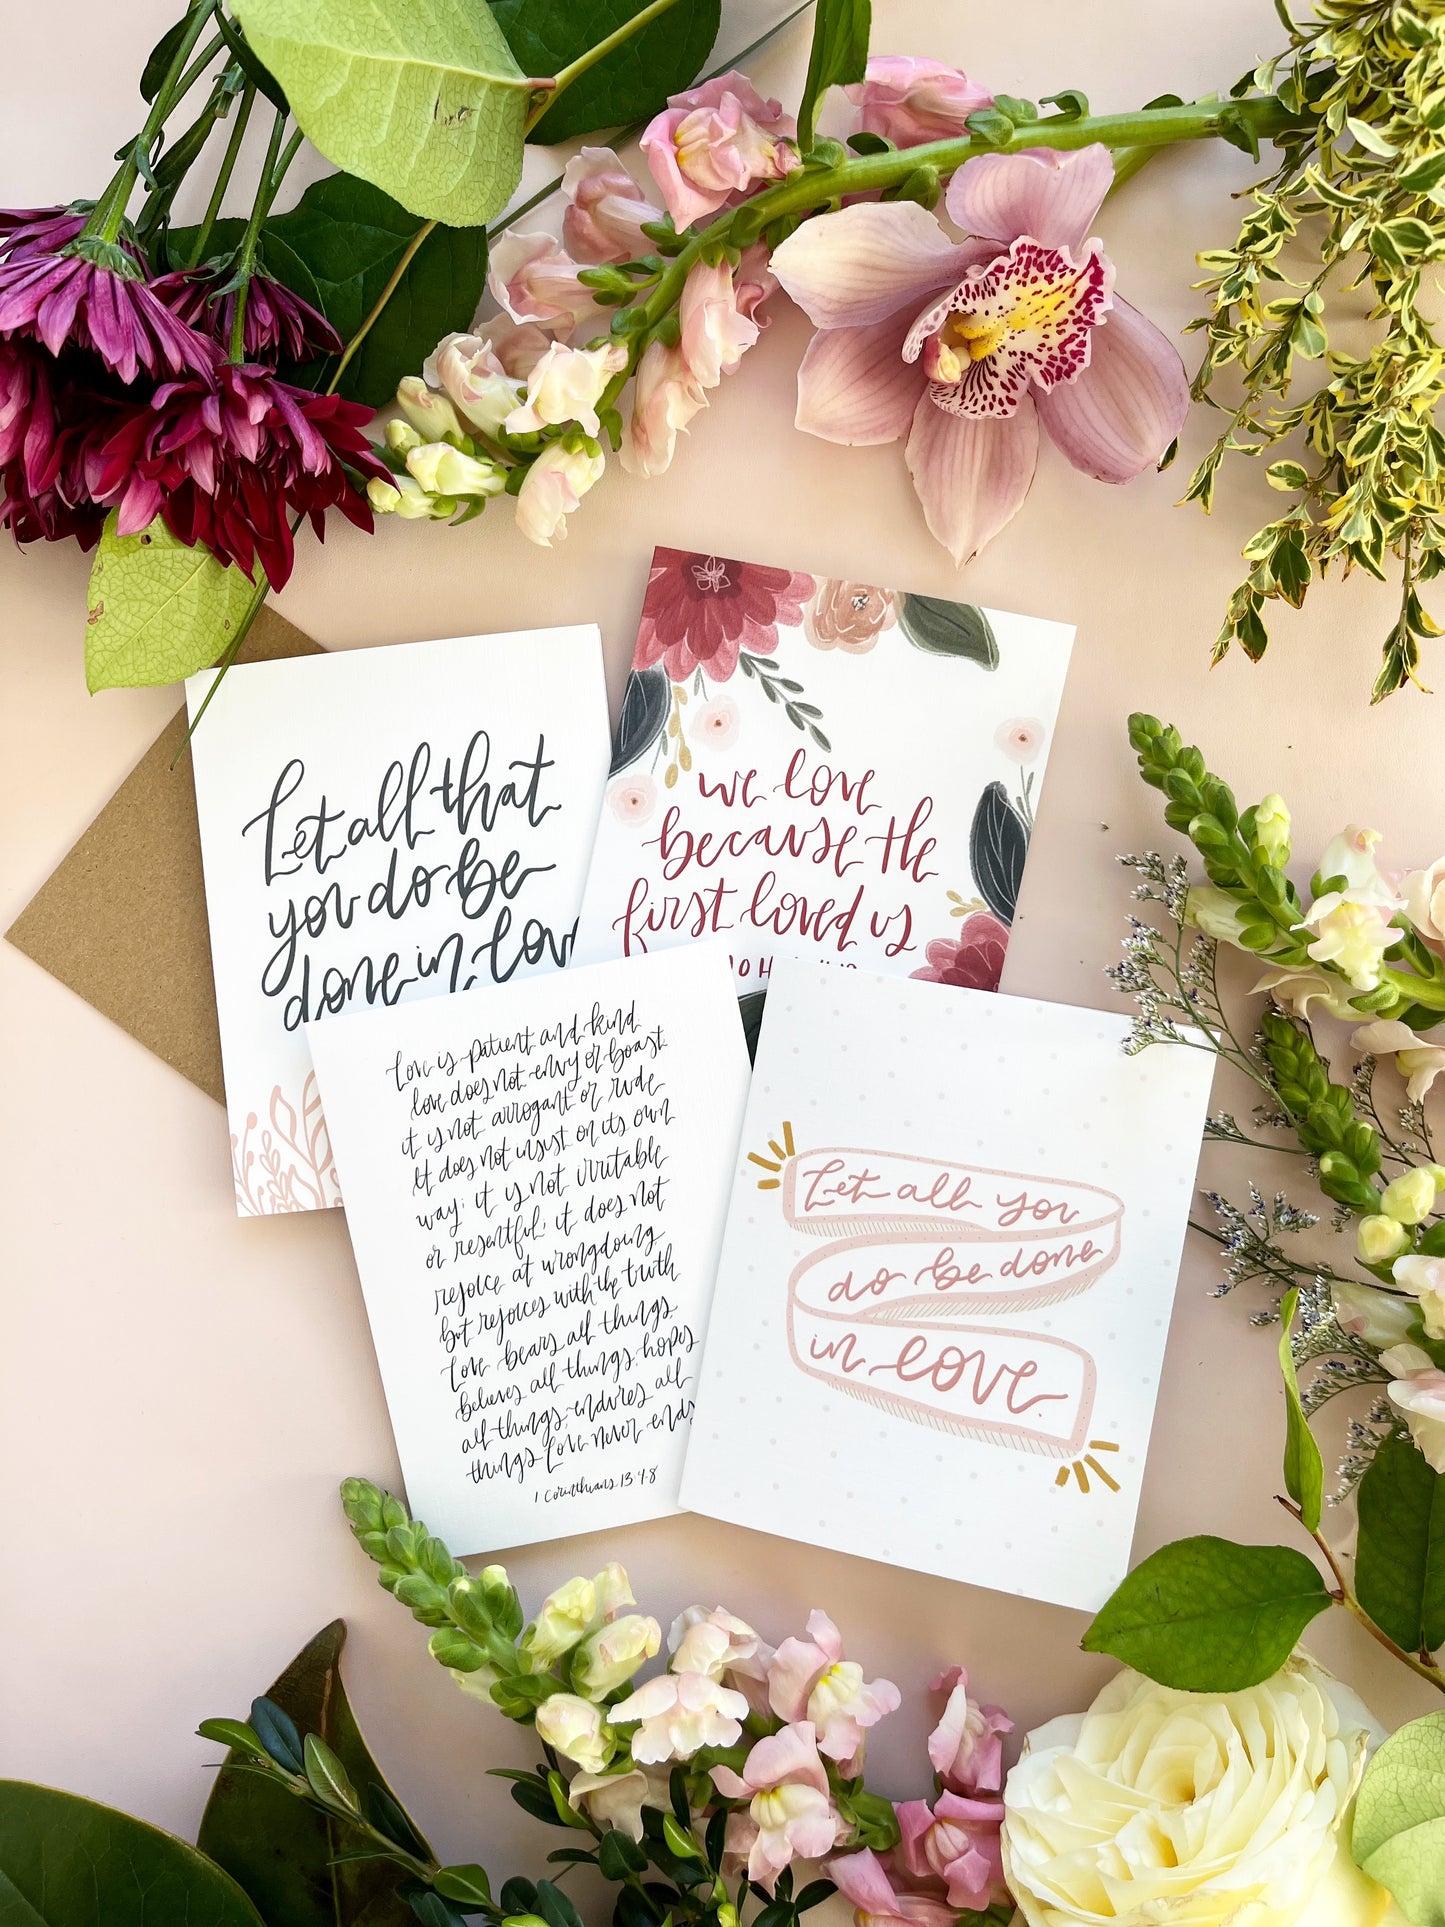 Let all that
you do be
done in love
we love
because the
first loved us
Love is patient and kind
love does not envy or boast.
it is not arrogant or rude
It does not insist on its own
way; it is not irritable
or resentful; it does not
rejoice at wrongdoing
but rejoices with the truth
Love bears all things,
believes all things, hopes
all things, endures all
things Love never ends
1 Corinthians 13 4-8
Let all you
do be done
in love.